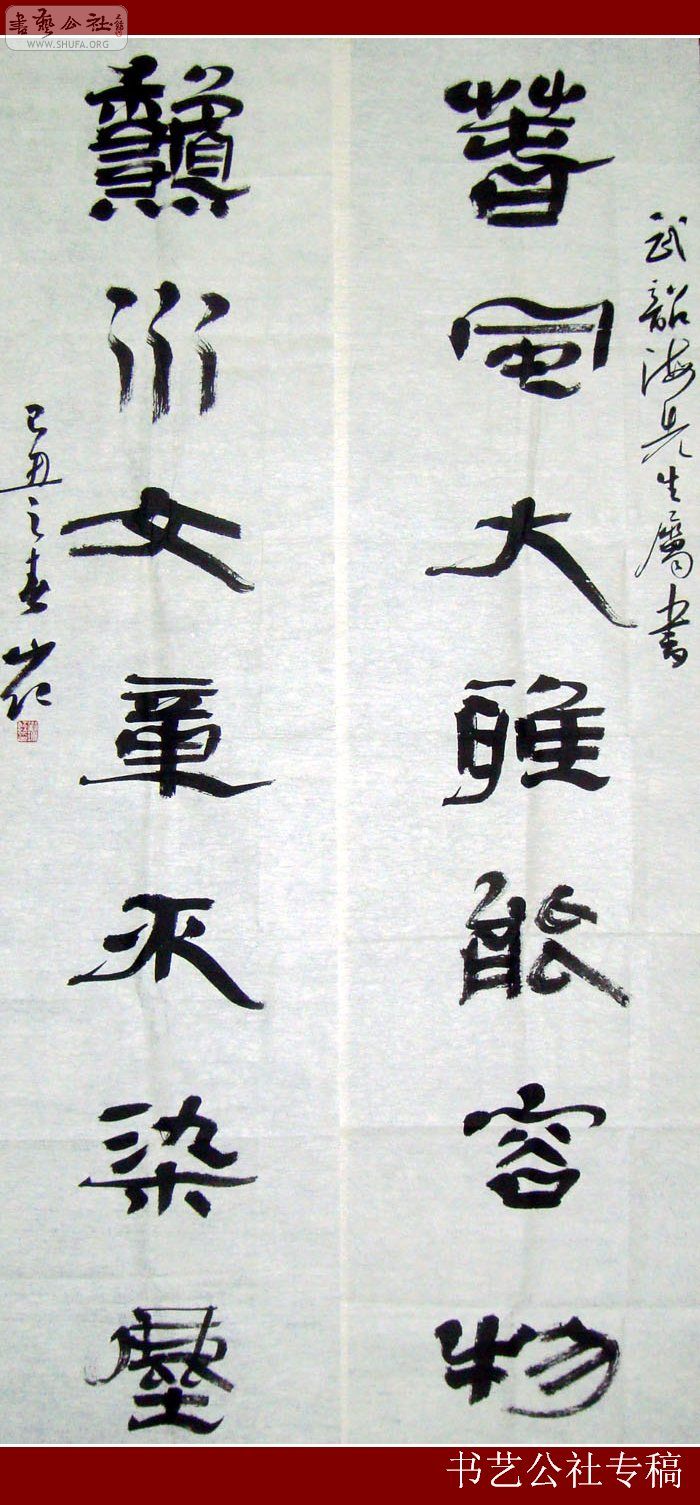 書藝公社
WWW.SHUFA.ORG
武韶海先生屬書
萅風大雅能容物
龝水文章不染塵
己丑之春
书艺公社专稿